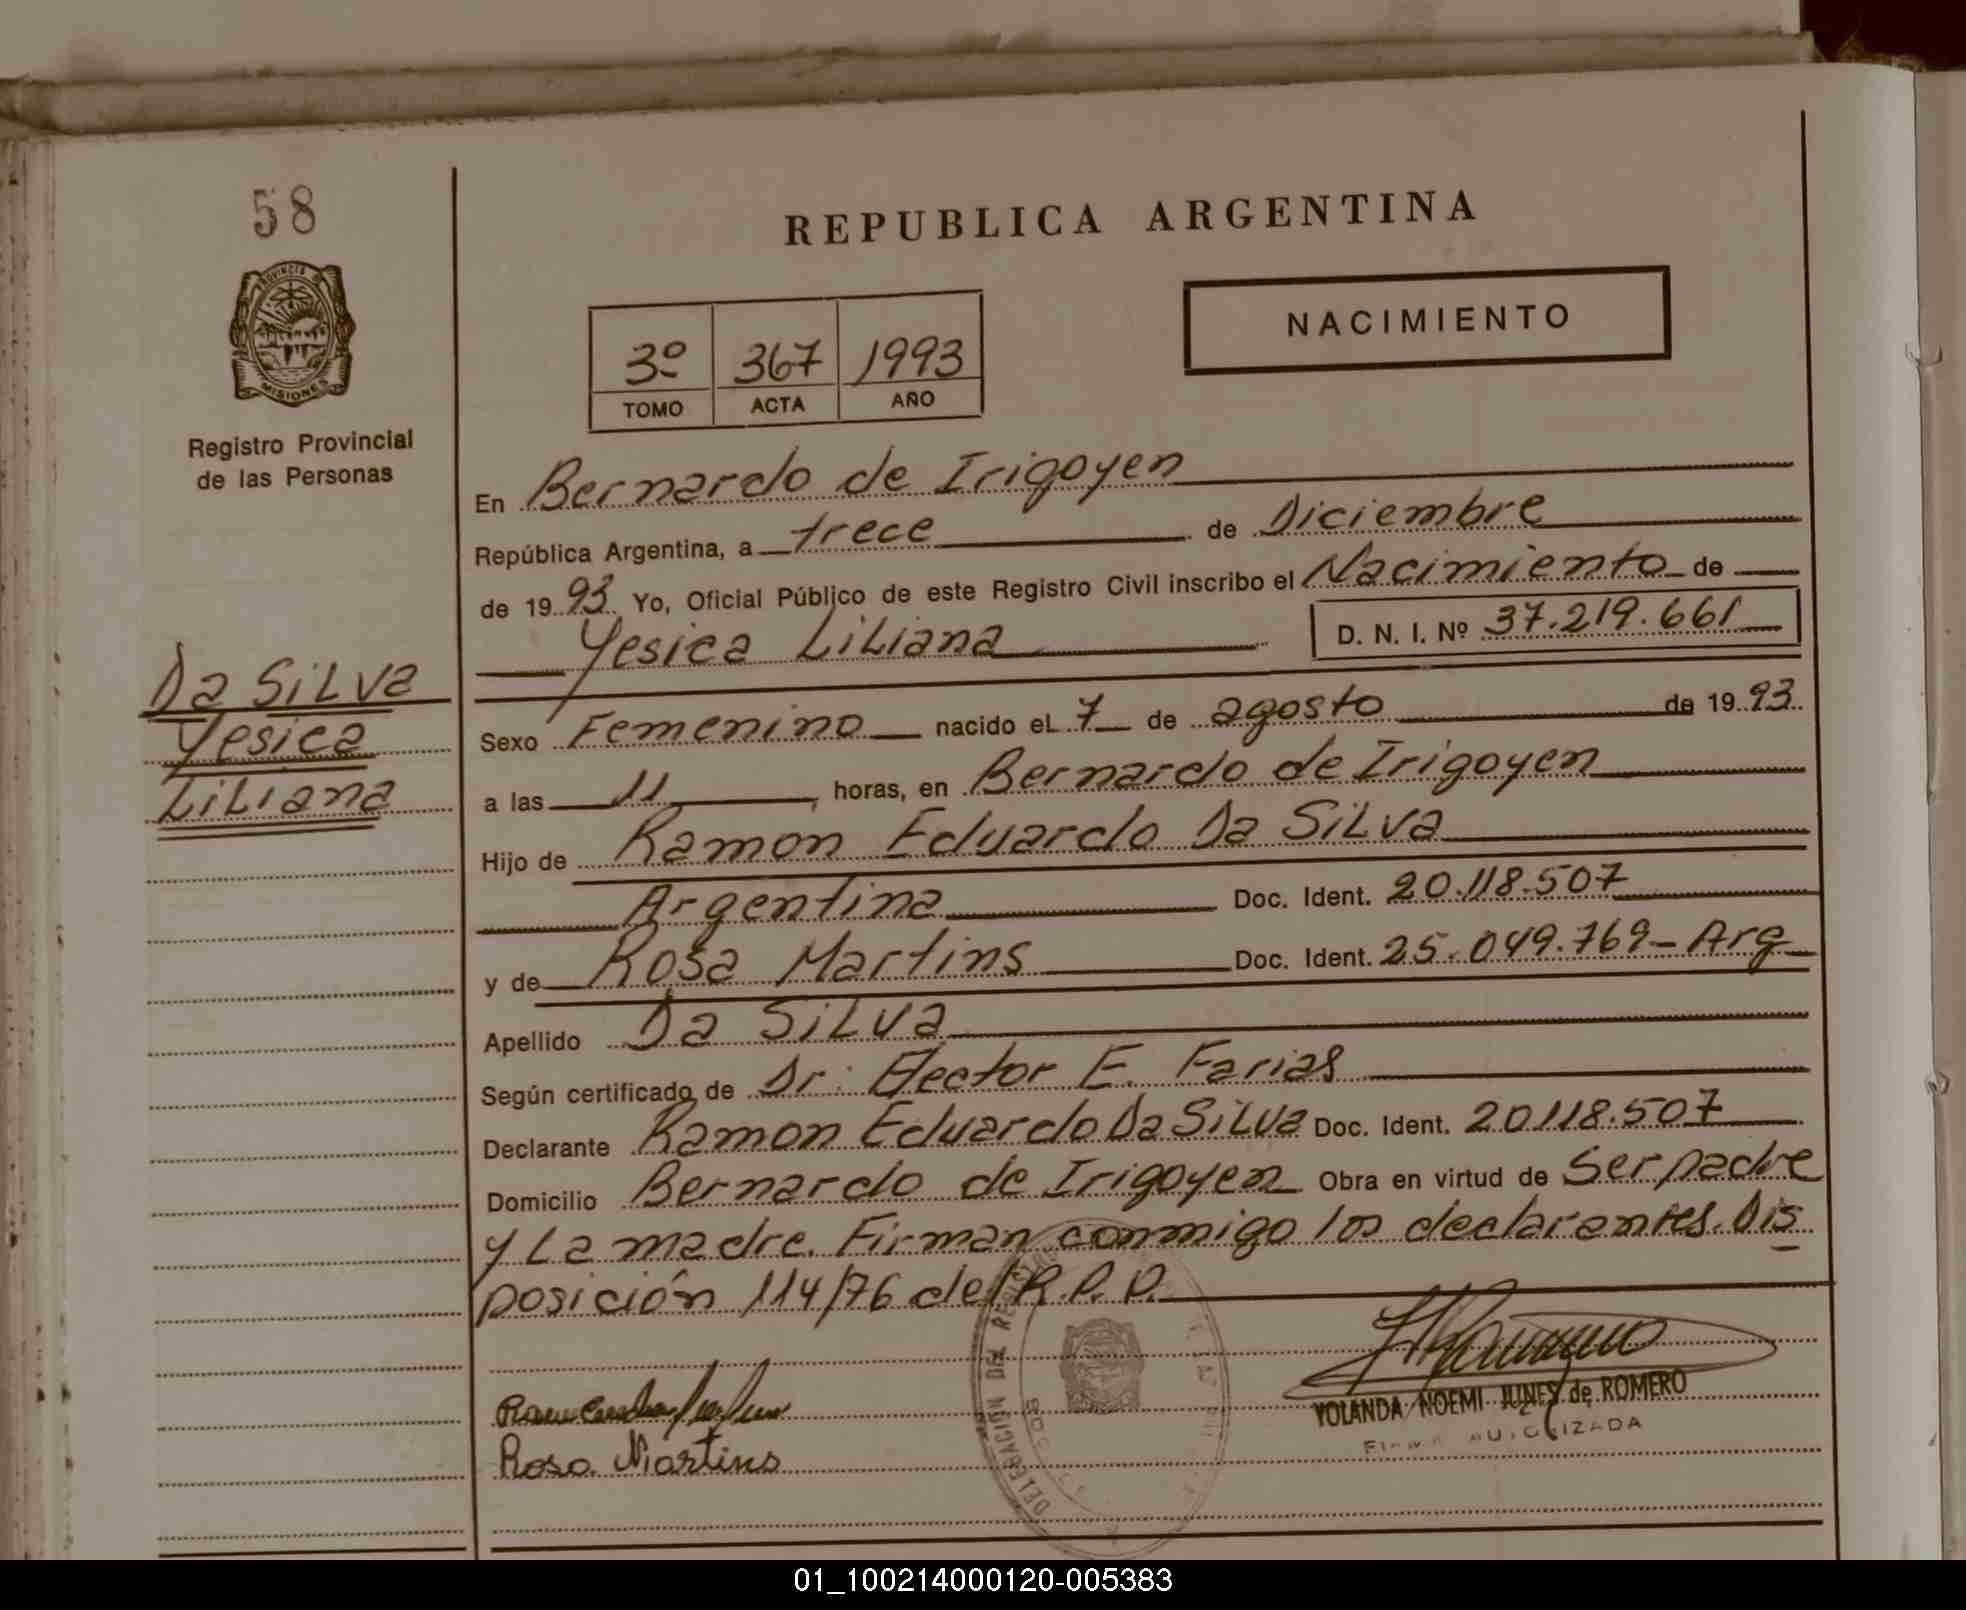 58
PROVINCIA D
MISIONES
Registro Provincial
de las Personas
Da Silva
Yesica
Liliana
REPUBLICA ARGENTINA
NACIMIENTO
3º 367 1993
TOMO ACTA AÑO
En Bernardo de Irigoyen
República Argentina, a trece de Diciembre
de 1993 Yo, Oficial Público de este Registro Civil inscribo el Nacimiento de
Yesica Liliana D. N. I. Nº 37.219.661
Sexo Femenino nacido el 7 de agosto de 1993
a las 11 horas, en Bernardo de Irigoyen
Hijo de Ramon Eduardo Da Silva
Argentina Doc. Ident. 20.118.507
y de Rosa Martins Doc. Ident. 25.049.769 - Arg
Apellido Da Silva
Según certificado de Dr: Hector E. Farias
Declarante Ramon Eduardo Da Silva Doc. Ident. 20118.507
Domicilio Bernardo de Irigoyen Obra en virtud de Ser padre
y La madre. Firman conmigo los declarantes. Dis
posición 114/76 del R.P.P.
DELEGACIÓN DEL REGISTRO
YOLANDA NOEMI JUNES de ROMERO
FIRMA AUTORIZADA
Rosa Martins
01_100214000120-005383